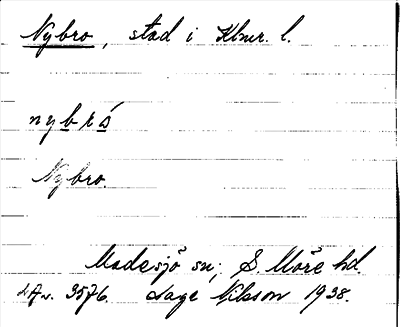 Nybro, stad i Klmr. l.
nybró
Nybro.
Madesjö sn; S. Möre hd.
3576. Aage Nilsson 1938.